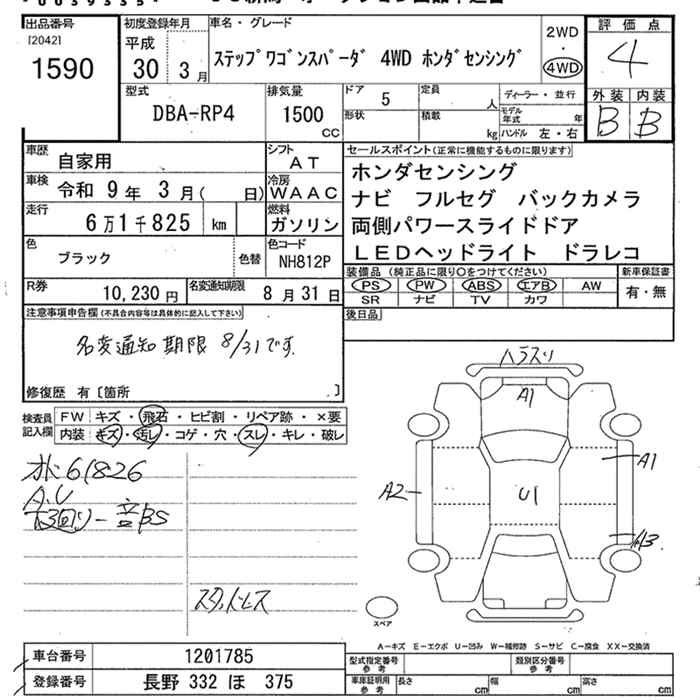 出品番号
[2042]
1590
初度登録年月
平成
30年 3月
車名・グレード
ｽﾃｯﾌﾟﾜｺﾞﾝｽﾊﾟｰﾀﾞ 4WD ﾎﾝﾀﾞｾﾝｼﾝｸﾞ
2WD
・
4WD
評価点
4
外装 内装
B B
型式
DBA-RP4
排気量
1500
CC
ドア
5
定員
人
ディーラー・並行
形状
積載
kg
モデル年式
年
ハンドル 左・右
車歴
自家用
シフト
AT
車検
令和 9年 3月( 日)
冷房
WAAC
走行
6万1千825 km
燃料
ガソリン
色
ブラック
色替
色コード
NH812P
R券
10,230 円
名変通知期限
8月31日
セールスポイント(正常に機能するものに限ります)
ホンダセンシング
ナビ フルセグ バックカメラ
両側パワースライドドア
LEDヘッドライト ドラレコ
装備品(純正品に限り○をつけてください)
PS PW ABS エアB AW
SR ナビ TV カワ
新車保証書
有・無
後日品
注意事項申告欄(不具合内容等は具体的に記入して下さい)
名変通知期限 8/31です.
修復歴 有〔箇所 〕
検査員記入欄
FW キズ・飛石・ヒビ割・リペア跡・×要
内装 キズ・汚レ・コゲ・穴・スレ・キレ・破レ
61826
A.U
スタットレス
ハラスリ
A1
A1
A2
U1
A3
スペア
A-キズ E-エクボ U-凹み W-補修跡 S-サビ C-腐食 XX-交換済
車台番号
1201785
登録番号
長野 332 ほ 375
型式指定番号
参考
類別区分番号
参考
車庫証明用
参考
長さ
cm
幅
cm
高さ
cm